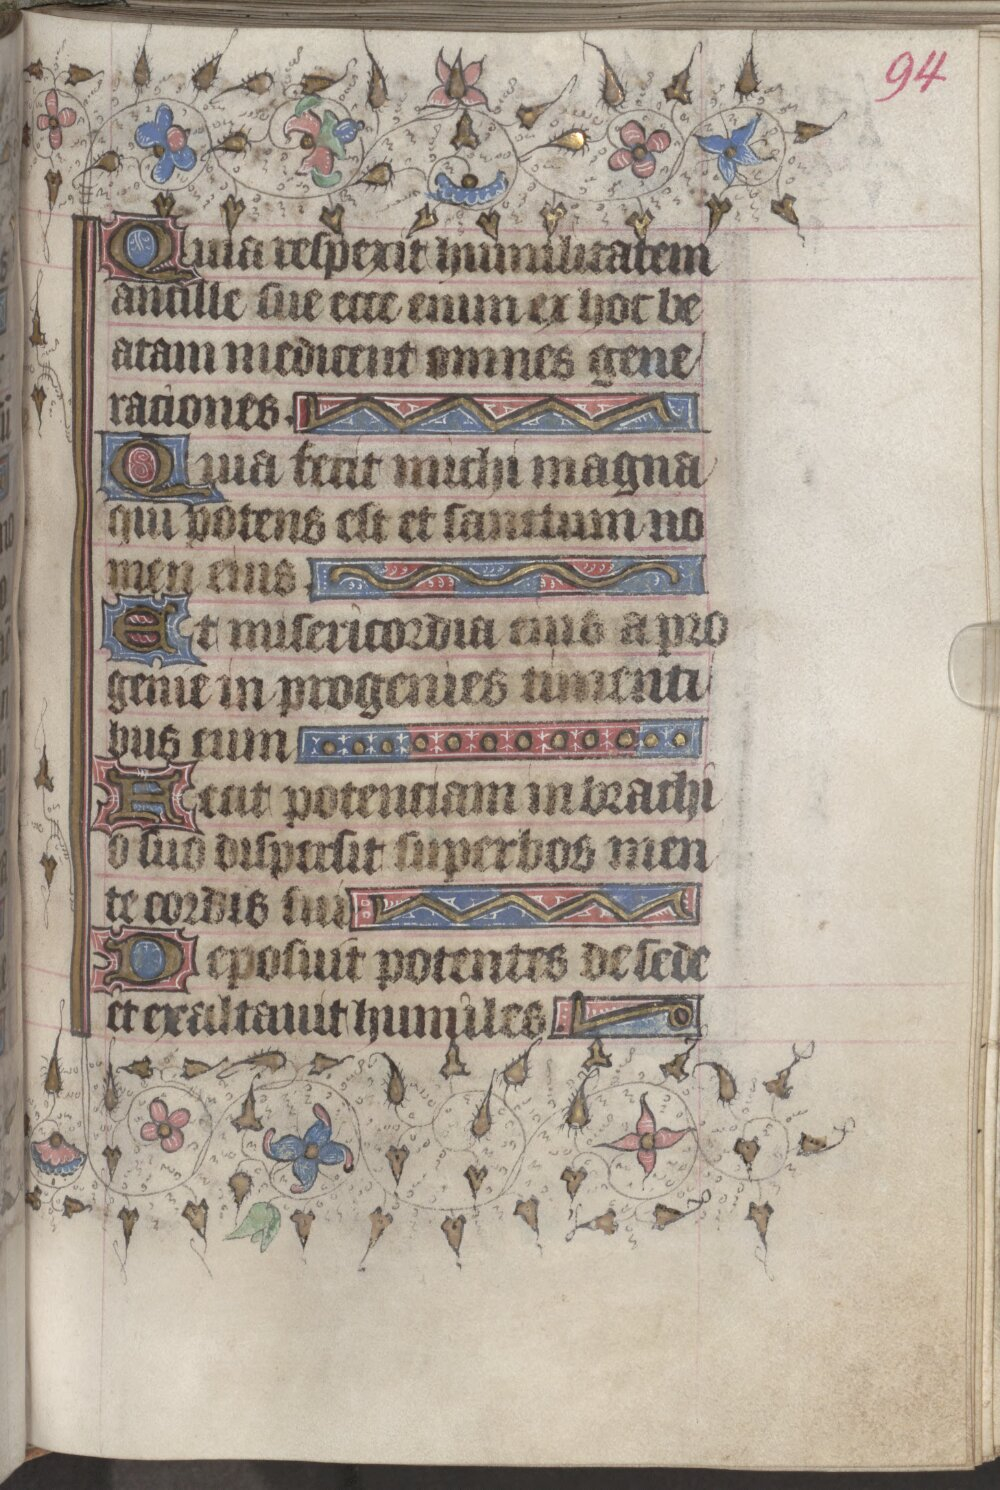 94
Quia respexit humilitatem
ancille sue ecce enim ex hoc be
atam me dicent omnes gene
rationes.
Quia fecit michi magna
qui potens est et sanctum no
men eius.
Et misericordia eius a pro
genie in progenies timenti
bus eum
Fecit potentiam in brachi
o suo dispersit superbos men
te cordis sui
Deposuit potentes de sede
et exaltauit humiles